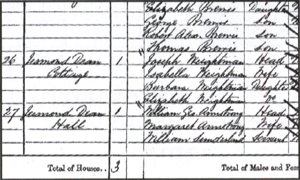 Elizabeth Bremis Daughter
George Bremis Son
Robert Alan Bremis son
Thomas Bremis son
26 Jesmond Dean Cottage 1 Joseph Weightman Head
Isabella Weightman Wife
Barbara Weightman Daughter
Elizabeth Weightman Do
27 Jesmond Dean Hall 1 William Geo Armstrong Head
Margaret Armstrong Wife
William Sunderland Servant
Total of Houses.. 3 Total of Males and Fem